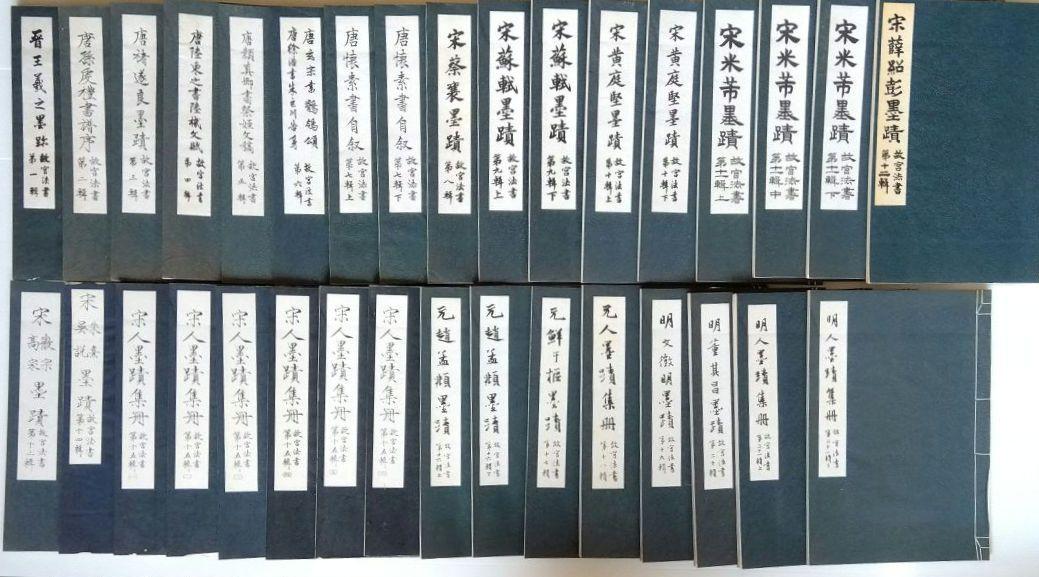 晉王羲之墨跡 故宮法書 第一輯
唐孫虔禮書譜序 故宮法書 第二輯
唐褚遂良墨蹟 故宮法書 第三輯
唐陸柬之書陸機文賦 故宮法書 第四輯
唐顏真卿書祭姪文稿 故宮法書 第五輯
唐玄宗書鶺鴒頌
唐徐浩書朱巨川告身 故宮法書 第六輯
唐懷素書自叙 故宮法書 第七輯上
唐懷素書自叙 故宮法書 第七輯下
宋蔡襄墨蹟 故宮法書 第八輯
宋蘇軾墨蹟 故宮法書 第九輯上
宋蘇軾墨蹟 故宮法書 第九輯下
宋黃庭堅墨蹟 故宮法書 第十輯上
宋黃庭堅墨蹟 故宮法書 第十輯下
宋米芾墨蹟 故宮法書 第十一輯上
宋米芾墨蹟 故宮法書 第十一輯中
宋米芾墨蹟 故宮法書 第十一輯下
宋薛紹彭墨蹟 故宮法書 第十二輯
宋徽宗高宗墨蹟 故宮法書 第十三輯
宋朱熹吳說墨蹟 故宮法書 第十四輯
宋人墨蹟集冊 故宮法書 第十五輯(一)
宋人墨蹟集冊 故宮法書 第十五輯(二)
宋人墨蹟集冊 故宮法書 第十五輯(三)
宋人墨蹟集冊 故宮法書 第十五輯
宋人墨蹟集冊 故宮法書 第十五輯
宋人墨蹟集冊 故宮法書 第十五輯
元趙孟頫墨蹟 故宮法書 第十六輯上
元趙孟頫墨蹟 故宮法書 第十六輯下
元鮮于樞墨蹟 故宮法書 第十七輯
元人墨蹟集冊 故宮法書 第十八輯
明文徵明墨蹟 故宮法書 第十九輯
明董其昌墨蹟 故宮法書 第二十輯
明人墨蹟集冊 故宮法書
明人墨蹟集冊 故宮法書